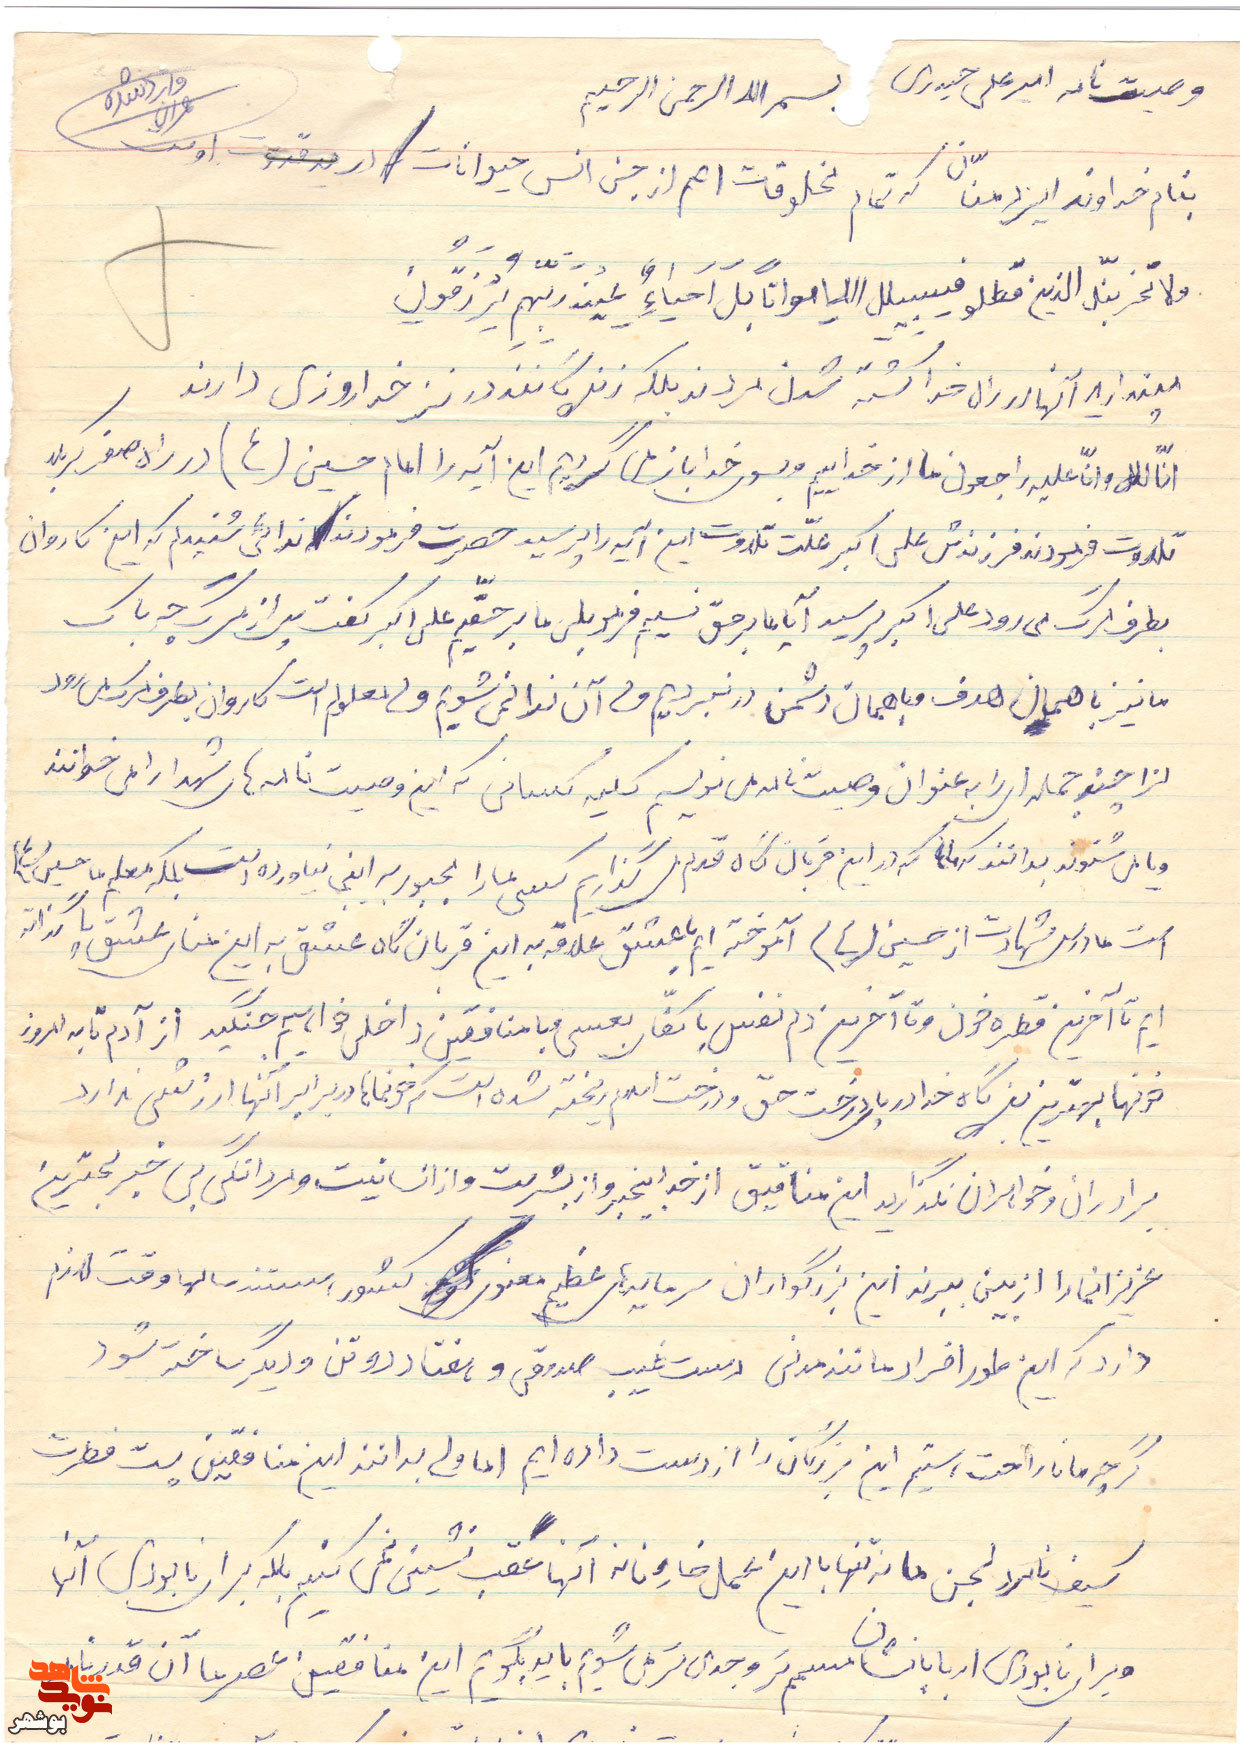 وصیت نامه امیر علی حیدری بسم الله الرحمن الرحیم
وارد شده
بنام خداوند ایزد منّان که تمام مخلوقات اعم از جن انس حیوانات در ید قدرت اوست
ولا تحزبنّل الذین قطلو فیسبیلل اللها امواتاً بَل اَحیاءٌ عِیندَ ربّهِم یُرزَقُون
مپندارید آنها در راه خدا کشته شدن مردند بلکه زنده گانند در نزد خدا روزی دارند
انّا لله وانّا علیه راجعون ما از خداییم و بسوی خدا باز می گردیم این آیه را امام حسین (ع) در راه سفر کربلا
تلاوت فرمودند فرزندش علی اکبر علّت تلاوت این آیه را پرسید حضرت فرمودند ندائی شنیدم که این کاروان
بطرف مرگ می رود علی اکبر پرسید آیا ما بر حقّ نسیم فرمود بلی ما بر حقّیم علی اکبر گفت پس از مرگ چه باک
ما نیز با همان هدف و با همان دشمن در نبردیم ولی آن ندا نمی شنویم ولی معلوم است کاروان بطرف مرگ می رود
لزا چند جمله ای را به عنوان وصیت نامه می نویسم کلیه کسانی که این وصیت نامه های شهدا را می خوانند
و یا می شنوند بدانند که ما که در این قربان گاه قدم می گذاریم کسی ما را مجبور به اینجا نیاورده است بلکه معلم ما حسین (ع)
است ما درس شهادت از حسین (ع) آموخته ایم با عشق علاقه به این قربان گاه عشق به این منای عشق پا گذاشته
ایم تا آخرین قطره خون و تا آخرین دم نفس با کفّار بعسی و با منافقین داخلی خواهیم جنگید از آدم تا به امروز
خونها بهترین بندگاه خدا در پای درخت حق و درخت اسلام ریخته شده است که خونهای ما در برابر آنها ارزشی ندارد
برادران و خواهران نگذارید این منافقین از خدا بیخبر و از بشریت و از انسانیت و مردانگی بی خبر بهترین
عزیزانما را از بین ببرند این بزرگواران سرمایه های عظیم معنوی کشور هستند سالها وقت لازم
دارد که این طور افراد مانند مدنی دست غیب صدوقی و هفتاد دو تن و دیگر ساخته شود
گرچه ما ناراحت هستیم این بزرگان را از دست داده ایم اما ولی بدانند این منافقین پست فطرت
کثیف نامرد لجن ما نه تنها با این عمل خائنانه آنها عقب نشینی نمی کنیم بلکه برای نابودی آنها
و برای نابودی اربابانشان مسمم تر و جدی تر می شویم باید بگویم این منافقین عصر ما آن قدر
شاهد
نوید
بوشهر